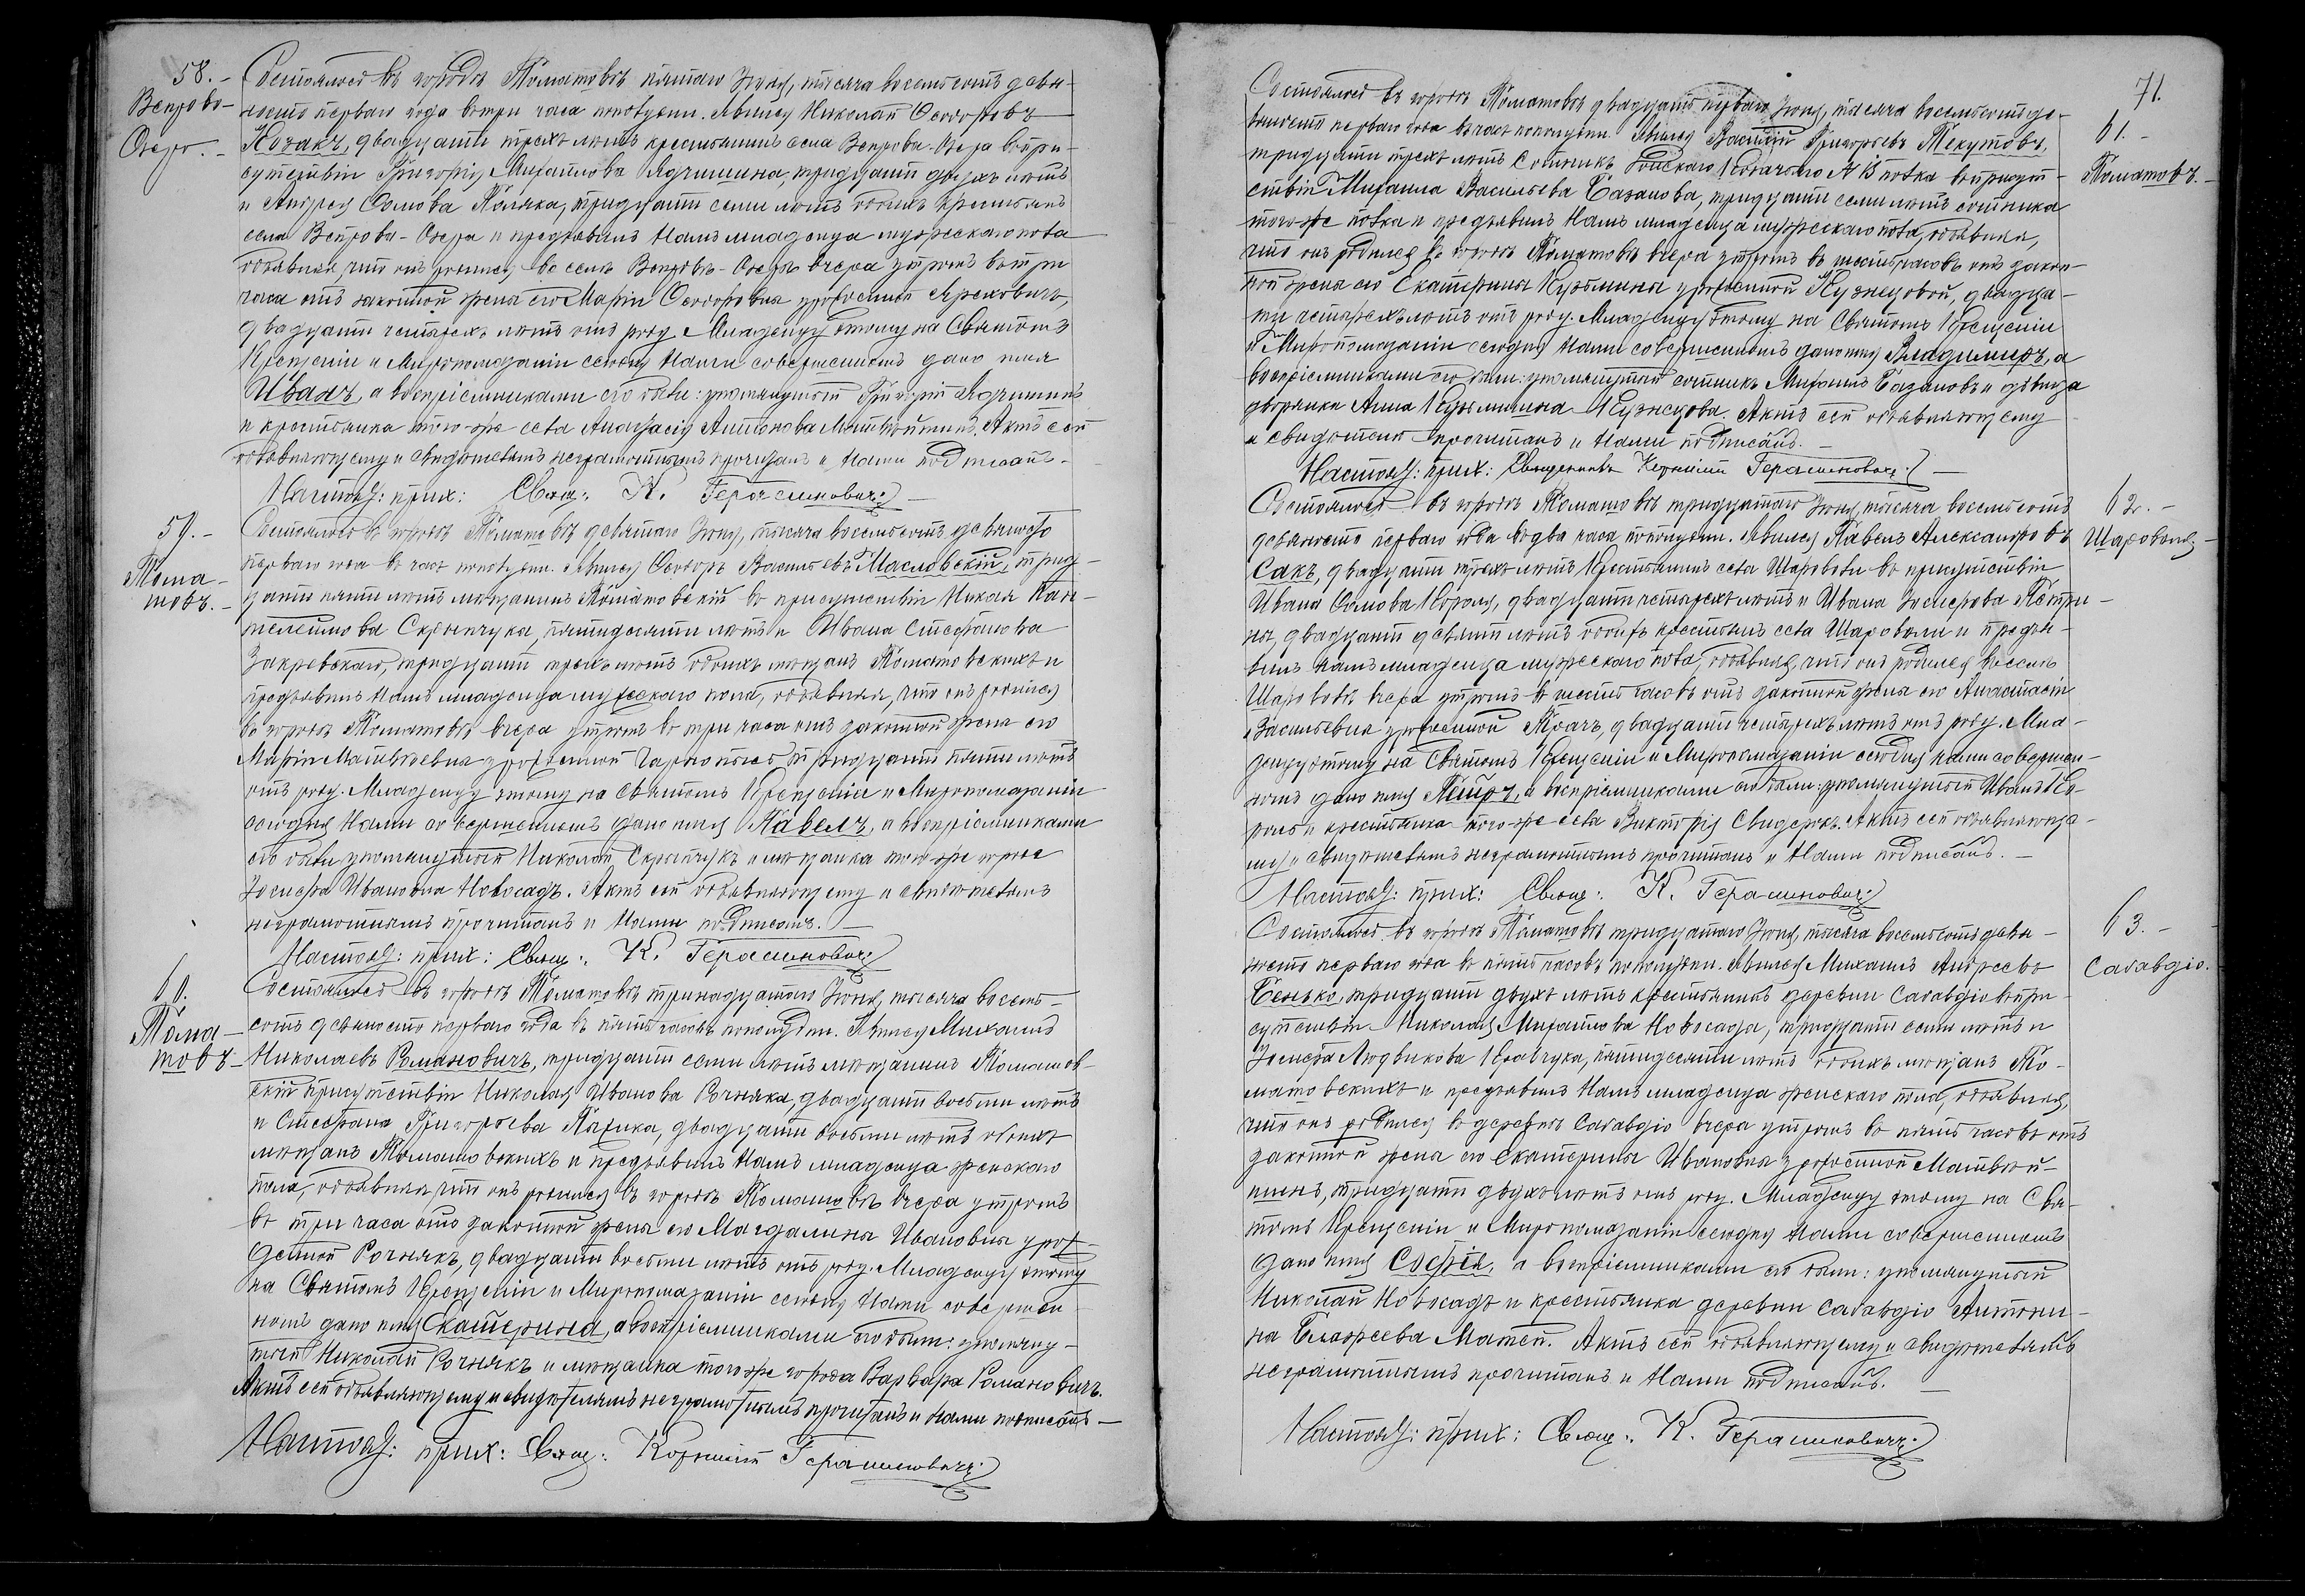 58.-
Вепрово-
Озеро.-
Состоялось въ городѣ Томашовѣ пятаго Іюня, тысяча восемьсотъ девя-
носто перваго года въ три часа пополудни. Явился Николай Ѳеодоровъ
Козакъ, двадцати трехъ лѣтъ крестьянинъ села Вепрова-Озера въ при-
сутствіи Григорія Михайлова Ядчишина, тридцати двухъ лѣтъ
и Андрея Фомова Поляка, тридцати семи лѣтъ обоихъ крестьянъ
села Вепрова-Озера и предъявилъ Намъ младенца мужескаго пола
объявляя, что онъ родился въ селѣ Вепровѣ-Озерѣ вчера утромъ въ три
часа отъ законной жены его Маріи Ѳеодоровны урожденной
двадцати четырехъ лѣтъ отъ роду. Младенцу этому на Святомъ
Крещеніи и Миропомазаніи сегодня Нами совершенномъ дано имя
Иванъ, а воспріемниками его были: упомянутый Григорій Ядчишинъ
и крестьянка того-же села Анастасія Антонова Матвѣйшинъ. Актъ сей
объявляющему и свидѣтелямъ неграмотнымъ прочитанъ и Нами подписанъ.-
Настоя: прих: Свящ: К. Герасимовичъ
59.-
Тома-
шовъ.-
Состоялось въ городѣ Томашовѣ девятаго Іюня, тысяча восемьсотъ девяносто
перваго года въ часъ пополудни. Явился Ѳеодоръ Васильевъ Масловскій, трид-
цати пяти лѣтъ мѣщанинъ Томашовскій въ присутствіи Николая Пан-
телеймова Скрыпчука, пятидесяти лѣтъ и Ивана Стефанова
Закревскаго, тридцати трехъ лѣтъ обоихъ мѣщанъ Томашовскихъ и
предъявилъ Намъ младенца мужескаго пола, объявляя, что онъ родился
въ городѣ Томашовѣ вчера утромъ въ три часа отъ законной жены его
Маріи Матвѣевны урожденной тридцати пяти лѣтъ
отъ роду. Младенцу этому на Святомъ Крещеніи и Миропомазаніи
сегодня Нами совершенномъ дано имя Павелъ, а воспріемниками
его были: упомянутый Николай Скрыпчукъ и мѣщанка того-же города
Іосифа Ивановна Новосадъ. Актъ сей объявляющему и свидѣтелямъ
неграмотнымъ прочитанъ и Нами подписанъ.-
Настоя: прих: Свящ: К. Герасимовичъ
60.
Тома-
шовъ-
Состоялось въ городѣ Томашовѣ тринадцатаго Іюня, тысяча восемь-
сотъ девяносто перваго года въ пять часовъ пополудни. Явился Михаилъ
Николаевъ Романовичъ, тридцати семи лѣтъ мѣщанинъ Томашов-
скій присутствіи Николая Иванова Рочняка, двадцати восьми лѣтъ
и Стефана Григорьева двадцати восьми лѣтъ обоихъ
мѣщанъ Томашовскихъ и предъявилъ Намъ младенца женскаго
пола, объявляя, что онъ родился въ городѣ Томашовѣ вчера утромъ
въ три часа отъ законной жены его Магдалины Ивановны урож-
денной Рочнякъ, двадцати восьми лѣтъ отъ роду. Младенцу этому
на Святомъ Крещеніи и Миропомазаніи сегодня Нами совершен-
номъ дано имя Екатерина, а воспріемниками его были: упомяну-
тый Николай Рочнякъ и мѣщанка того-же города Варвара Романовичъ.
Актъ сей объявляющему и свидѣтелямъ неграмотнымъ прочитанъ и Нами подписанъ-
Настоя: прих: Свящ: Корнилій Герасимовичъ
71.
61.-
Томашовъ.-
Состоялось въ городѣ Томашовѣ двадцать перваго Іюня, тысяча восемьсотъ де-
вяносто перваго года въ часъ пополудни. Явился Василій Григорьевъ Текутовъ,
тридцати трехъ лѣтъ Сотникъ Донскаго Козачьяго № 15 полка въ присут-
ствіи Михаила Васильева Базанова, тридцати семи лѣтъ сотника
того-же полка и предъявилъ Намъ младенца мужескаго пола, объявляя,
что онъ родился въ городѣ Томашовѣ вчера утромъ въ шесть часовъ отъ закон-
ной жены его Екатерины Кузьмины урожденной Кузнецовой, двадца-
ти четырехъ лѣтъ отъ роду. Младенцу этому на Святомъ Крещеніи
и Миропомазаніи сегодня Нами совершенномъ дано имя Владимиръ, а
воспріемниками его были: упомянутый сотникъ Михаилъ Базановъ и дѣвица
дворянка Анна Кузьминична Кузнецова. Актъ сей объявляющему
и свидѣтелю прочитанъ и Нами подписанъ.-
Настоя: прих: Священникъ Корнилій Герасимовичъ
62.-
Шароволя-
Состоялось въ городѣ Томашовѣ тридцатаго Іюня, тысяча восемьсотъ
девяносто перваго года въ два часа пополудни. Явился Павелъ Александровъ
Сакъ, двадцати трехъ лѣтъ Крестьянинъ села Шароволи въ присутствіи
Ивана Фомова Короля, двадцати четырехъ лѣтъ и Ивана Іосифова Петри-
ны, двадцати девяти лѣтъ обоихъ крестьянъ села Шароволи и предъя-
вилъ Намъ младенца мужескаго пола, объявляя, что онъ родился въ селѣ
Шароволѣ вчера утромъ въ шесть часовъ отъ законной жены его Анастасіи
Васильевны урожденной Ткачъ, двадцати четырехъ лѣтъ отъ роду. Мла-
денцу этому на Святомъ Крещеніи и Миропомазаніи сегодня Нами совершен-
номъ дано имя Петръ, а воспріемниками его были: упомянутый Иванъ Ко-
роль и крестьянка того-же села Викторія Свидерокъ. Актъ сей объявляюще-
му и свидѣтелямъ неграмотнымъ прочитанъ и Нами подписанъ.-
Настоя: прих: Свящ: К. Герасимовичъ
63.-
Сабавдіо.
Состоялось въ городѣ Томашовѣ тридцатаго Іюня, тысяча восемьсотъ девя-
носто перваго года въ пять часовъ пополудни. Явился Михаилъ Андреевъ
Сенько, тридцати двухъ лѣтъ крестьянинъ деревни въ при-
сутствіи Николая Михайлова Новосада, тридцати семи лѣтъ и
Іосифа Людвикова Кравчука, пятидесяти лѣтъ обоихъ мѣщанъ То-
машовскихъ и предъявилъ Намъ младенца женскаго пола, объявляя,
что онъ родился въ деревнѣ вчера утромъ въ пять часовъ отъ
законной жены его Екатерины Ивановны урожденной Матвѣй-
шинъ, тридцати двухъ лѣтъ отъ роду. Младенцу этому на Свя-
томъ Крещеніи и Миропомазаніи сегодня Нами совершенномъ
дано имя Софія, а воспріемниками его были: упомянутый
Николай Новосадъ и крестьянка деревни Антони-
на Матей. Актъ сей объявляющему и свидѣтелямъ
неграмотнымъ прочитанъ и Нами подписанъ.-
Настоя: прих: Свящ: К. Герасимовичъ